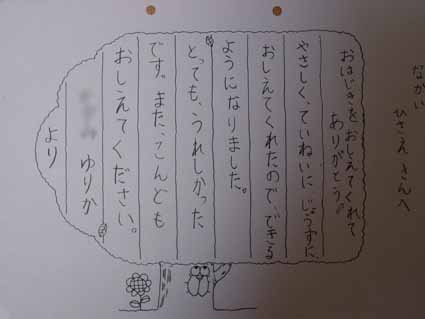 ながい
ひさえさんへ
おはじきをおしえてくれて
ありがとう。
やさしく、ていねいにじょうずに
おしえてくれたので、できる
ようになりました。
とっても、うれしかった
です。また、こんども
おしえてください。
ゆりか
より